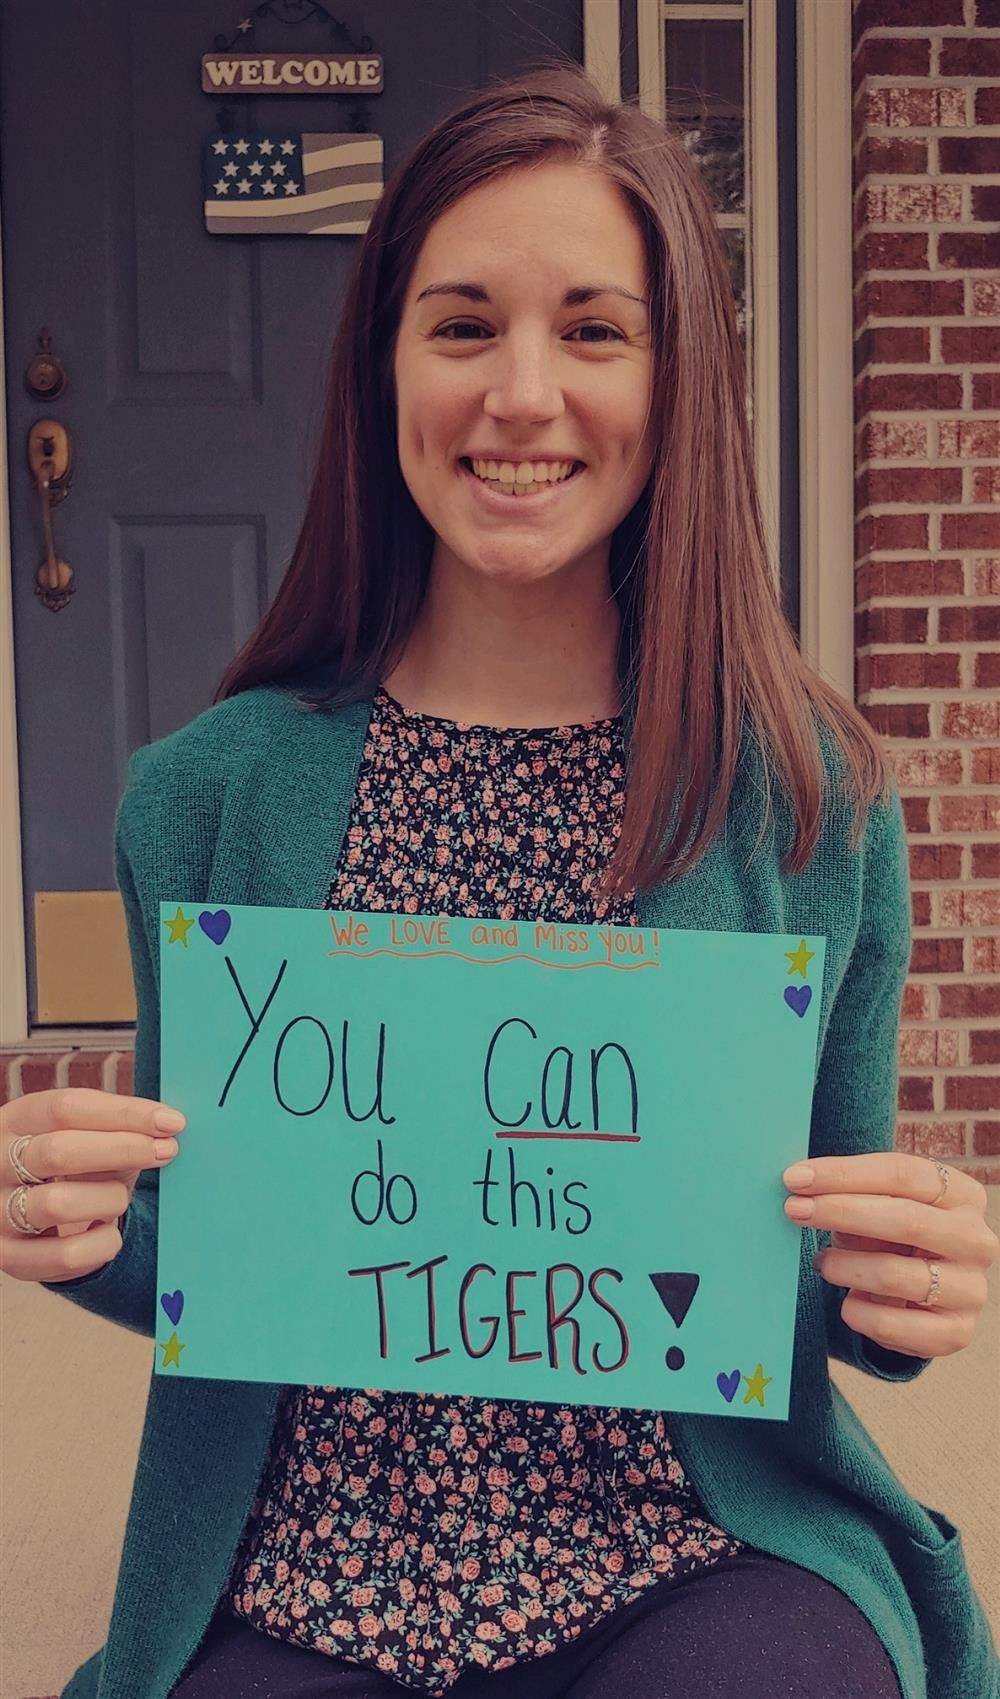 WELCOME
We LOVE and Miss You!
You Can
do this
TIGERS!